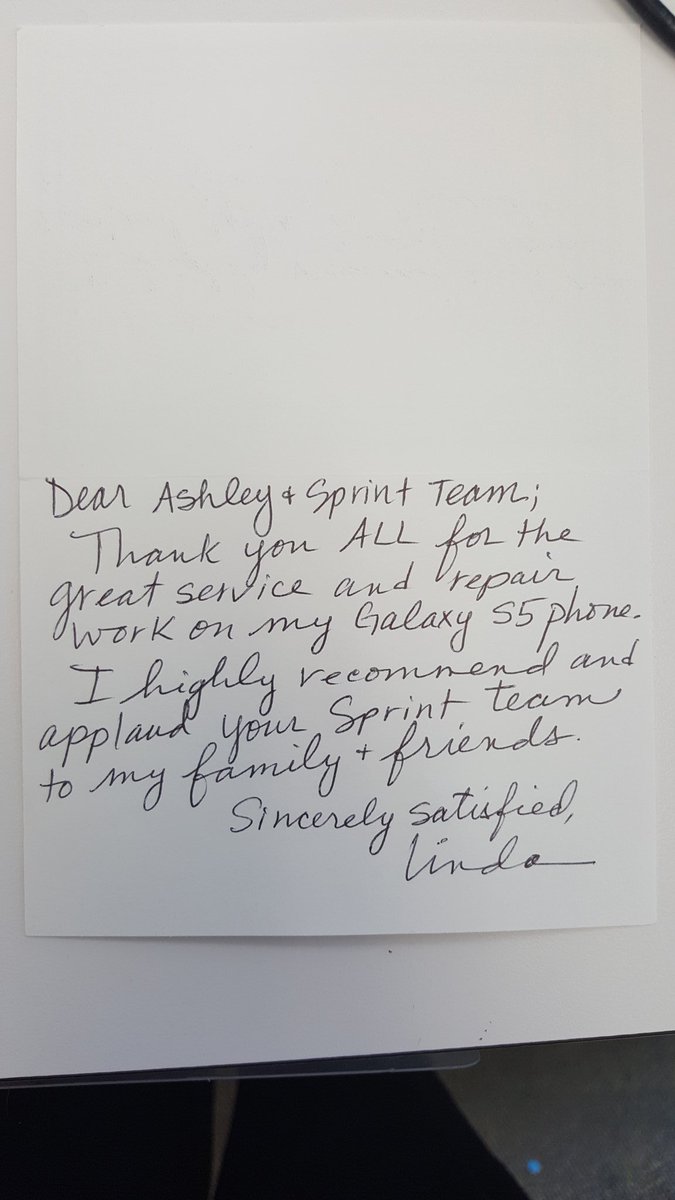 Dear Ashley + Sprint Team;
Thank you ALL for the
great service and repair
work on my Galaxy S5 phone.
I highly recommend and
applaud your Sprint team
to my family + friends.
Sincerely satisfied,
Linda